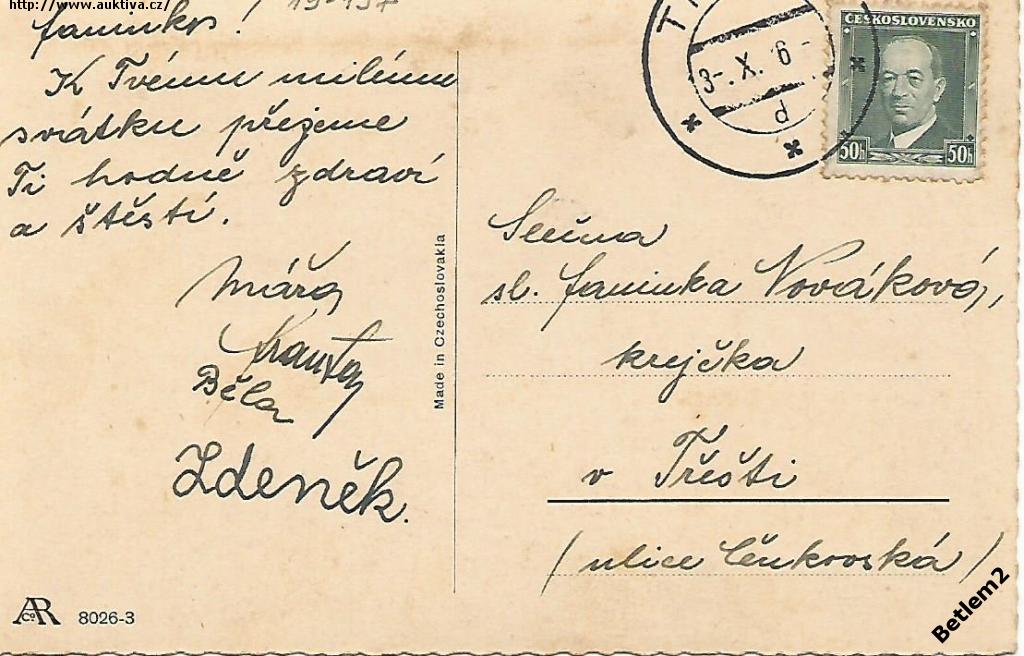 http://www.auktiva.cz/
Faninko!
K Tvému milému
svátku přejeme
Ti hodně zdraví
a štěstí.
Mářa
Franta
Běla
Zdeněk.
Made in Czechoslovakia
ARCo 8026-3
ČESKOSLOVENSKO
50h 50h
3-.X.
d
Slečna
sl. Faninka Nováková,
krejčka
v Třešti
(ulice Čeňkovská)
Betlem2